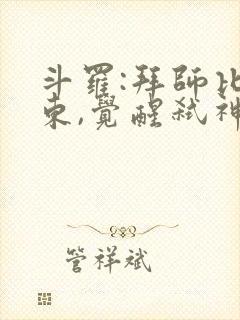 斗羅:拜師比
東,覺醒弒神
管祥斌